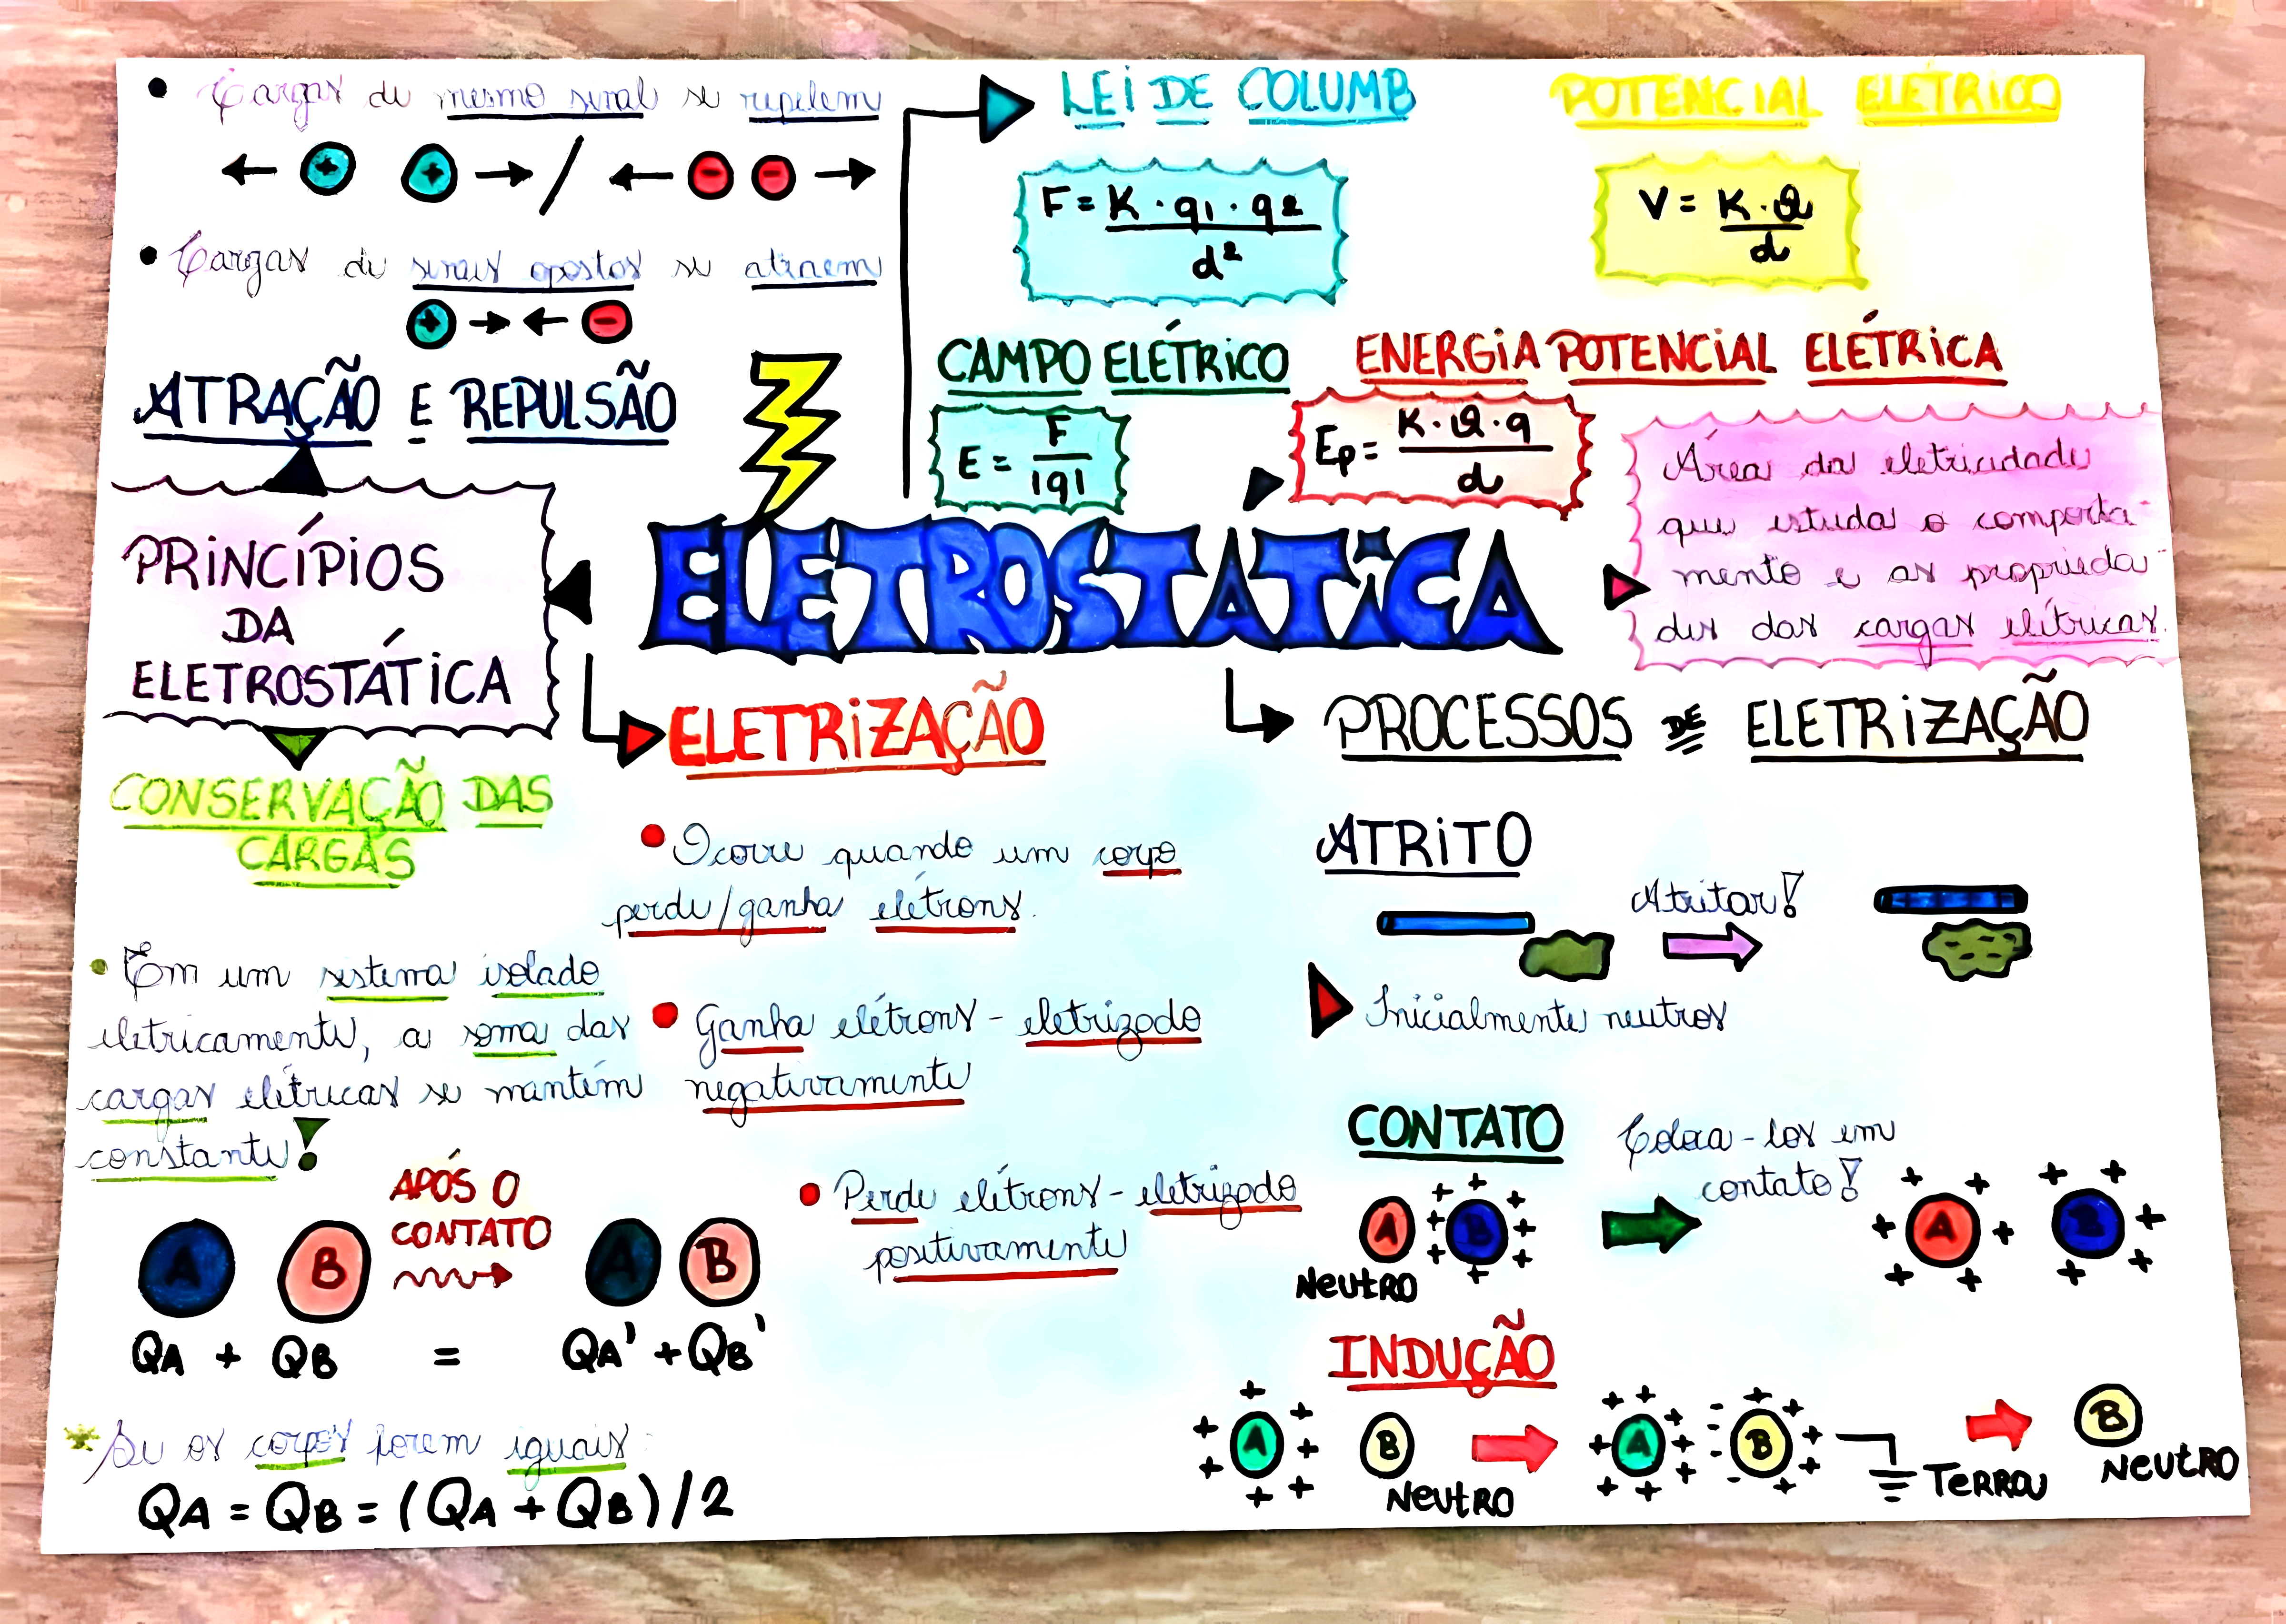 • Cargas de mesmo sinal se repelem
← + + → / ← - - →
• Cargas de sinais opostos se atraem
+ → ← -
ATRAÇÃO E REPULSÃO
PRINCÍPIOS
DA
ELETROSTÁTICA
CONSERVAÇÃO DAS
CARGAS
• Em um sistema isolado
eletricamente, a soma das
cargas elétricas se mantém
constante!
A B
APÓS O
CONTATO
A B
QA + QB = QA' + QB'
* Se os corpos forem iguais:
QA = QB = (QA + QB)/2
LEI DE COLUMB
F = K · q1 · q2
d²
POTENCIAL ELÉTRICO
V = K · Q
d
CAMPO ELÉTRICO
E = F
|q|
ENERGIA POTENCIAL ELÉTRICA
Ep = K · Q · q
d
ELETROSTÁTICA
Área da eletricidade
que estuda o comporta-
mento e as proprieda-
des das cargas elétricas.
ELETRIZAÇÃO
• Ocorre quando um corpo
perde/ganha elétrons.
• Ganha elétrons - eletrizado
negativamente
• Perde elétrons - eletrizado
positivamente
PROCESSOS DE ELETRIZAÇÃO
ATRITO
Atritar!
Inicialmente neutros
CONTATO
Coloca-los em
contato!
A B
NEUTRO
A B
INDUÇÃO
A B
NEUTRO
A B
TERRA
B
NEUTRO